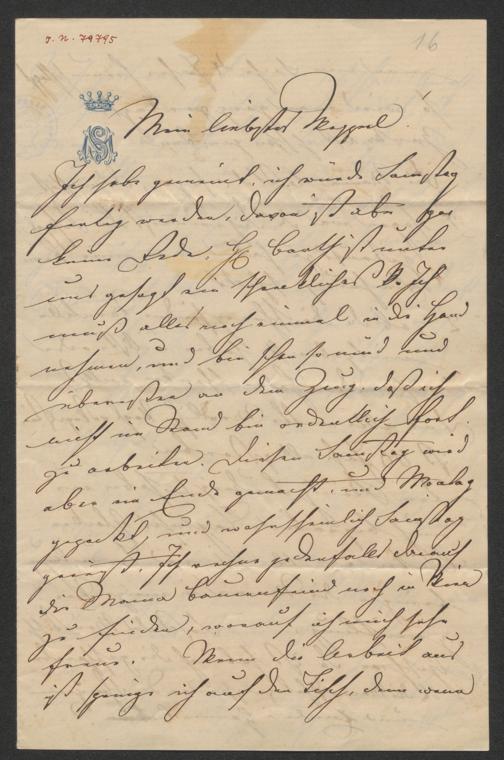 J. N. 79795
16
Mein liebster Moppel!
Ich habe gemeint, ich würde Samstag
fertig werden, davon ist aber gar
keine Rede. H. Barth ist unter
uns gesagt ein schreckliches Ich
muß alles noch einmal in die Hand
nehmen, und bin schon so müd und
an dem Zeug, daß ich
nicht im Stand bin ordentlich fort
zu arbeiten. Diesen Samstag wird
aber ein Ende gemacht, und Montag
gepackt, und wahrscheinlich Samstag
gereist. Ich rechne jedenfalls darauf
die Mama Bauernfeind noch in Wien
zu finden, worauf ich mich sehr
freue. Wenn die Arbeit aus
ist springe ich auf den Tisch, denn wenn